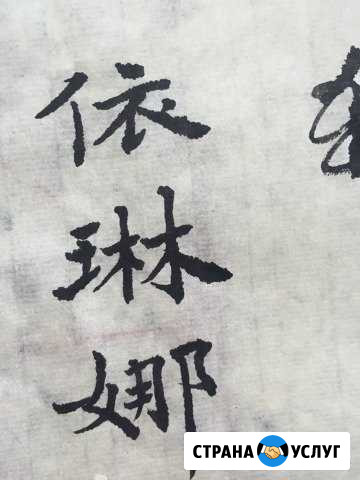 依琳娜
СТРАНА УСЛУГ